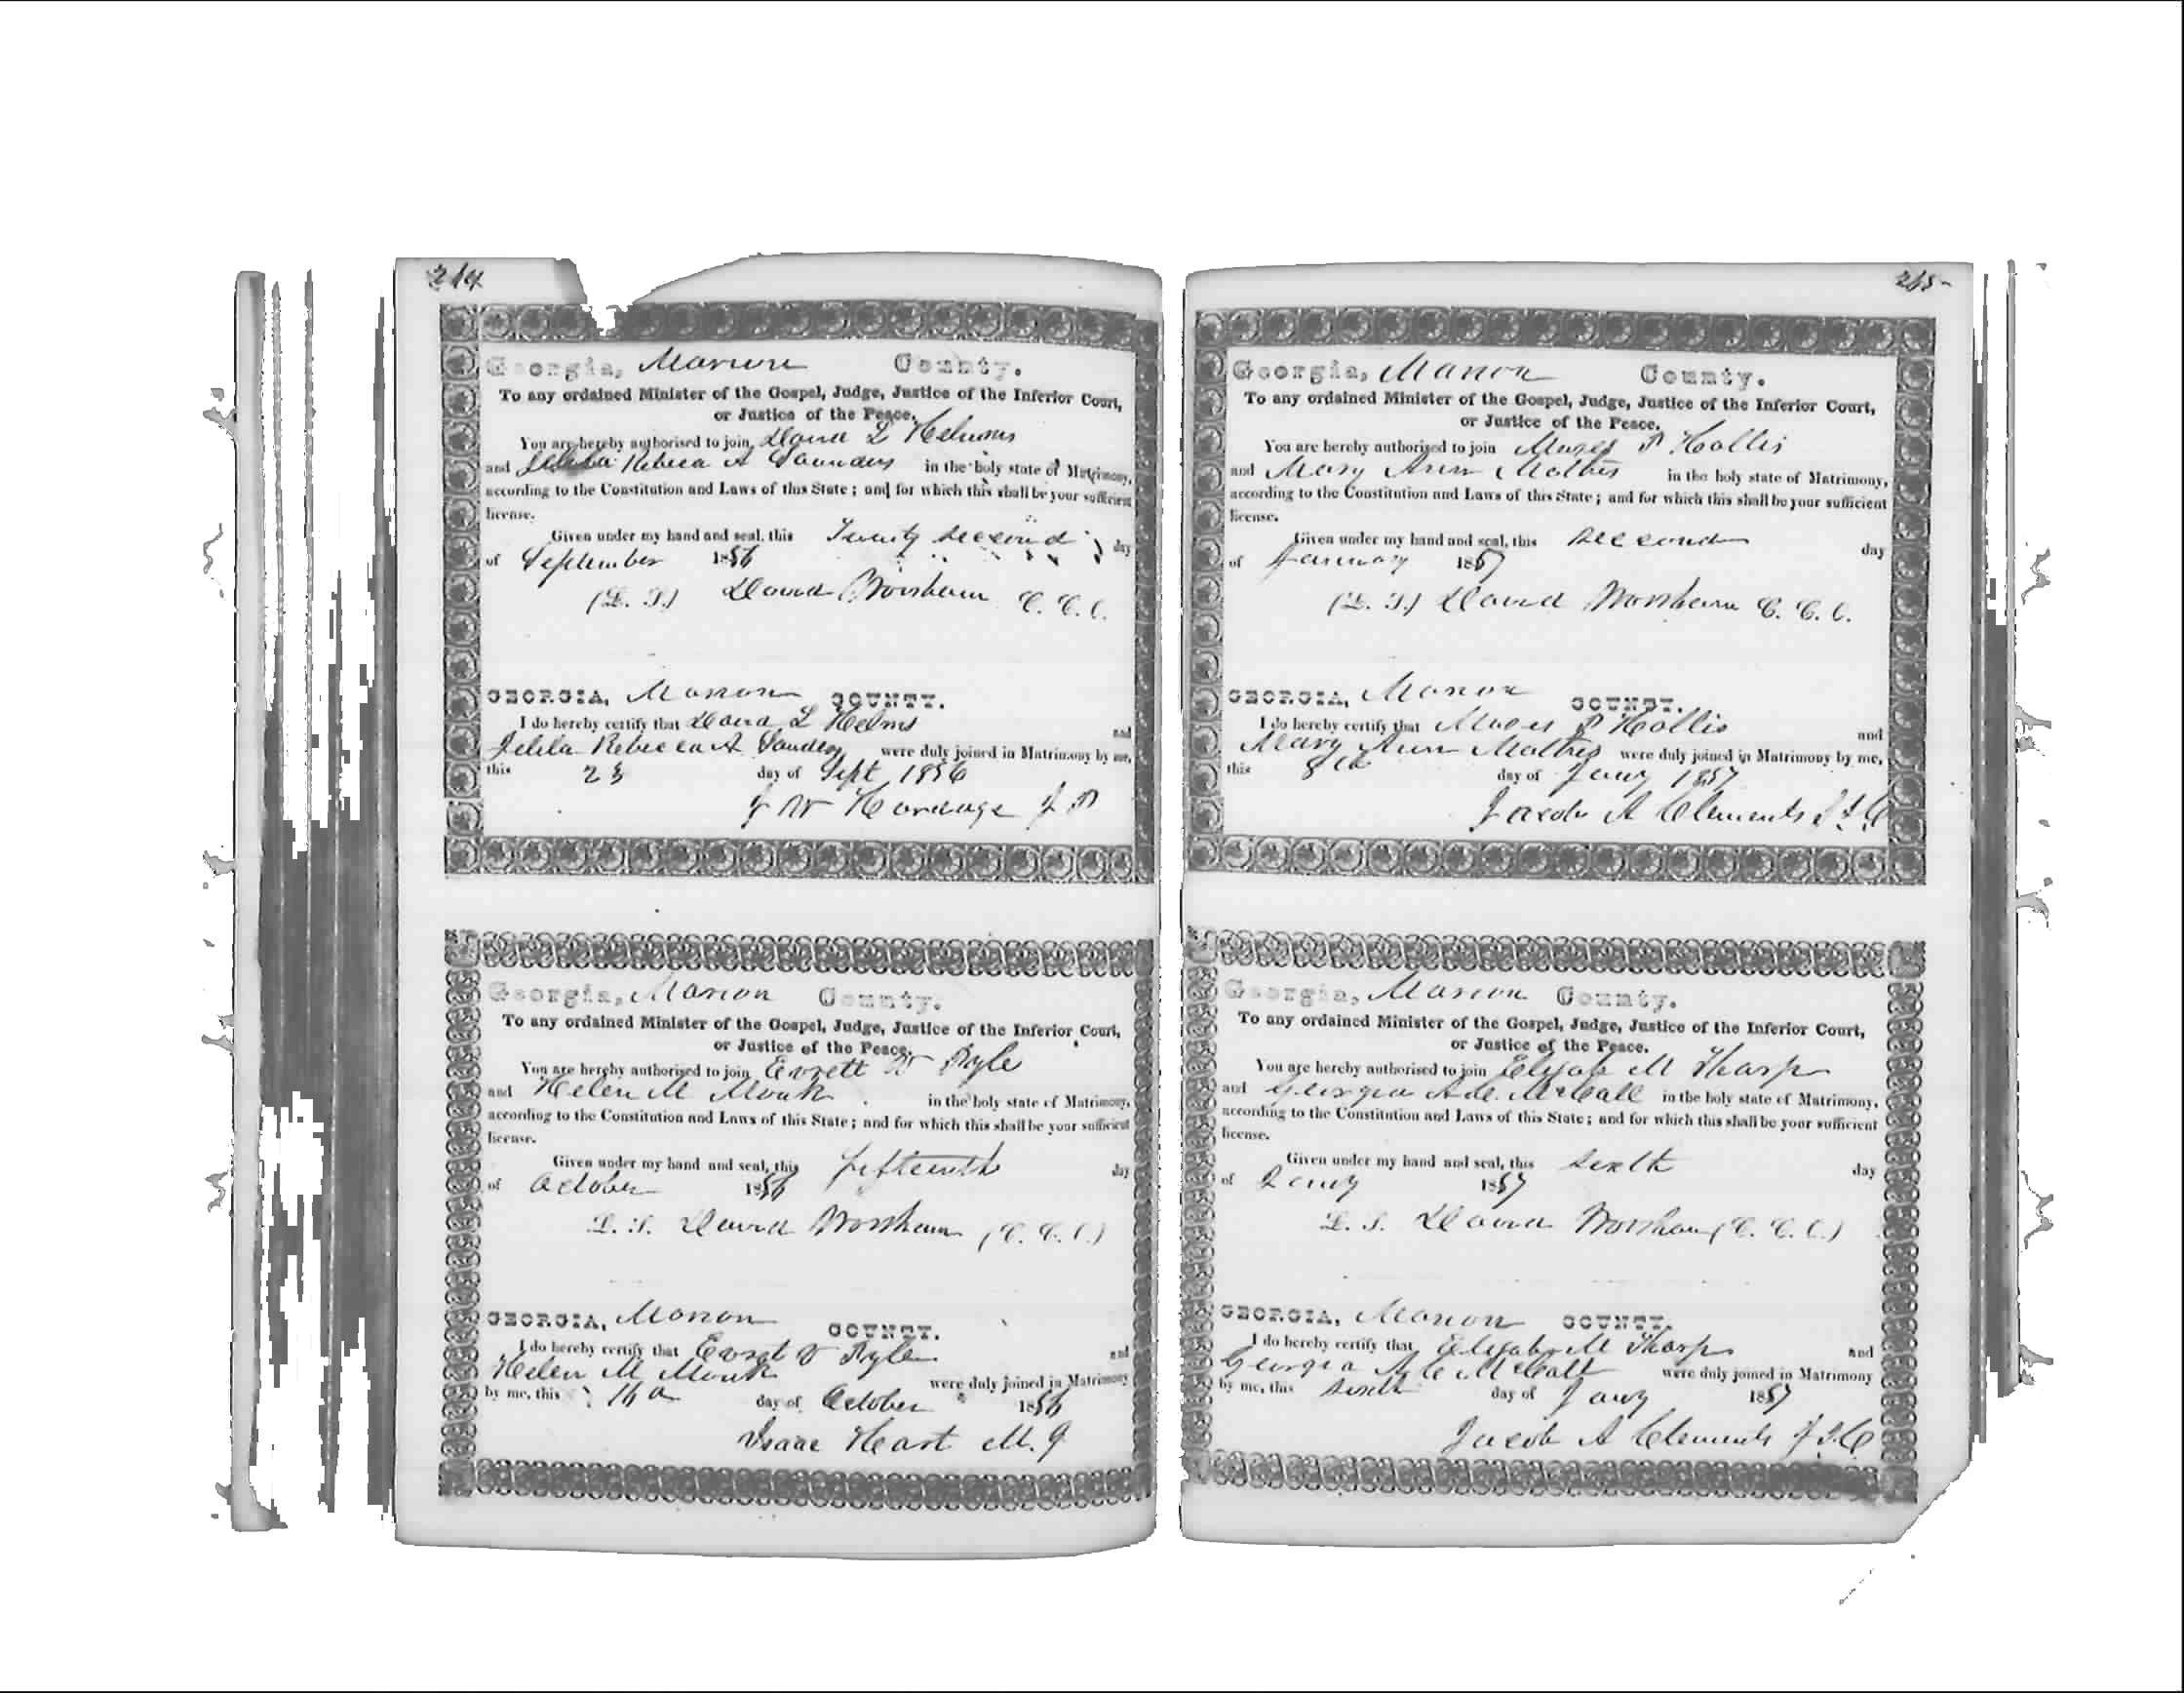 264
Georgia, Marion County.
To any ordained Minister of the Gospel, Judge, Justice of the Inferior Court,
or Justice of the Peace.
You are hereby authorised to join David L Helums
and Rebeca A Saunders in the holy state of Matrimony,
according to the Constitution and Laws of this State; and for which this shall be your sufficient
license.
Given under my hand and seal, this Twenty second day
of September 1856
(L. S.) David Worsham C. C. C.
GEORGIA, Marion COUNTY.
I do hereby certify that David L Helms and
Rebecca A Sanders were duly joined in Matrimony by me,
this 23 day of Sept 1856
J W Hardage J P
Georgia, Marion County.
To any ordained Minister of the Gospel, Judge, Justice of the Inferior Court,
or Justice of the Peace.
You are hereby authorised to join Evrett Pyle
and Helen M Monk in the holy state of Matrimony,
according to the Constitution and Laws of this State; and for which this shall be your sufficient
license.
Given under my hand and seal, this fifteenth day
of October 1856
L. S. David Worsham (C. C. C.)
GEORGIA, Marion COUNTY.
I do hereby certify that Evret Pyle and
Helen M Monk were duly joined in Matrimony
by me, this 16th day of October 1856
Isaac Hart M. G
265
Georgia, Marion County.
To any ordained Minister of the Gospel, Judge, Justice of the Inferior Court,
or Justice of the Peace.
You are hereby authorised to join Moses P Hollis
and Mary Ann Mathis in the holy state of Matrimony,
according to the Constitution and Laws of this State; and for which this shall be your sufficient
license.
Given under my hand and seal, this Second day
of January 1857
(L. S.) David Worsham C. C. C.
GEORGIA, Marion COUNTY.
I do hereby certify that Moses P Hollis and
Mary Ann Mathis were duly joined in Matrimony by me,
this 8th day of Jany 1857
Jacob A Clements J. I. C
Georgia, Marion County.
To any ordained Minister of the Gospel, Judge, Justice of the Inferior Court,
or Justice of the Peace.
You are hereby authorised to join Elijah M Tharp
and Georgia A C McCall in the holy state of Matrimony,
according to the Constitution and Laws of this State; and for which this shall be your sufficient
license.
Given under my hand and seal, this sixth day
of Jany 1857
L. S. David Worsham (C. C. C.)
GEORGIA, Marion COUNTY.
I do hereby certify that Elijah M Tharp and
Georgia A C McCall were duly joined in Matrimony
by me, this sixth day of Jany 1857
Jacob A Clements J. I. C